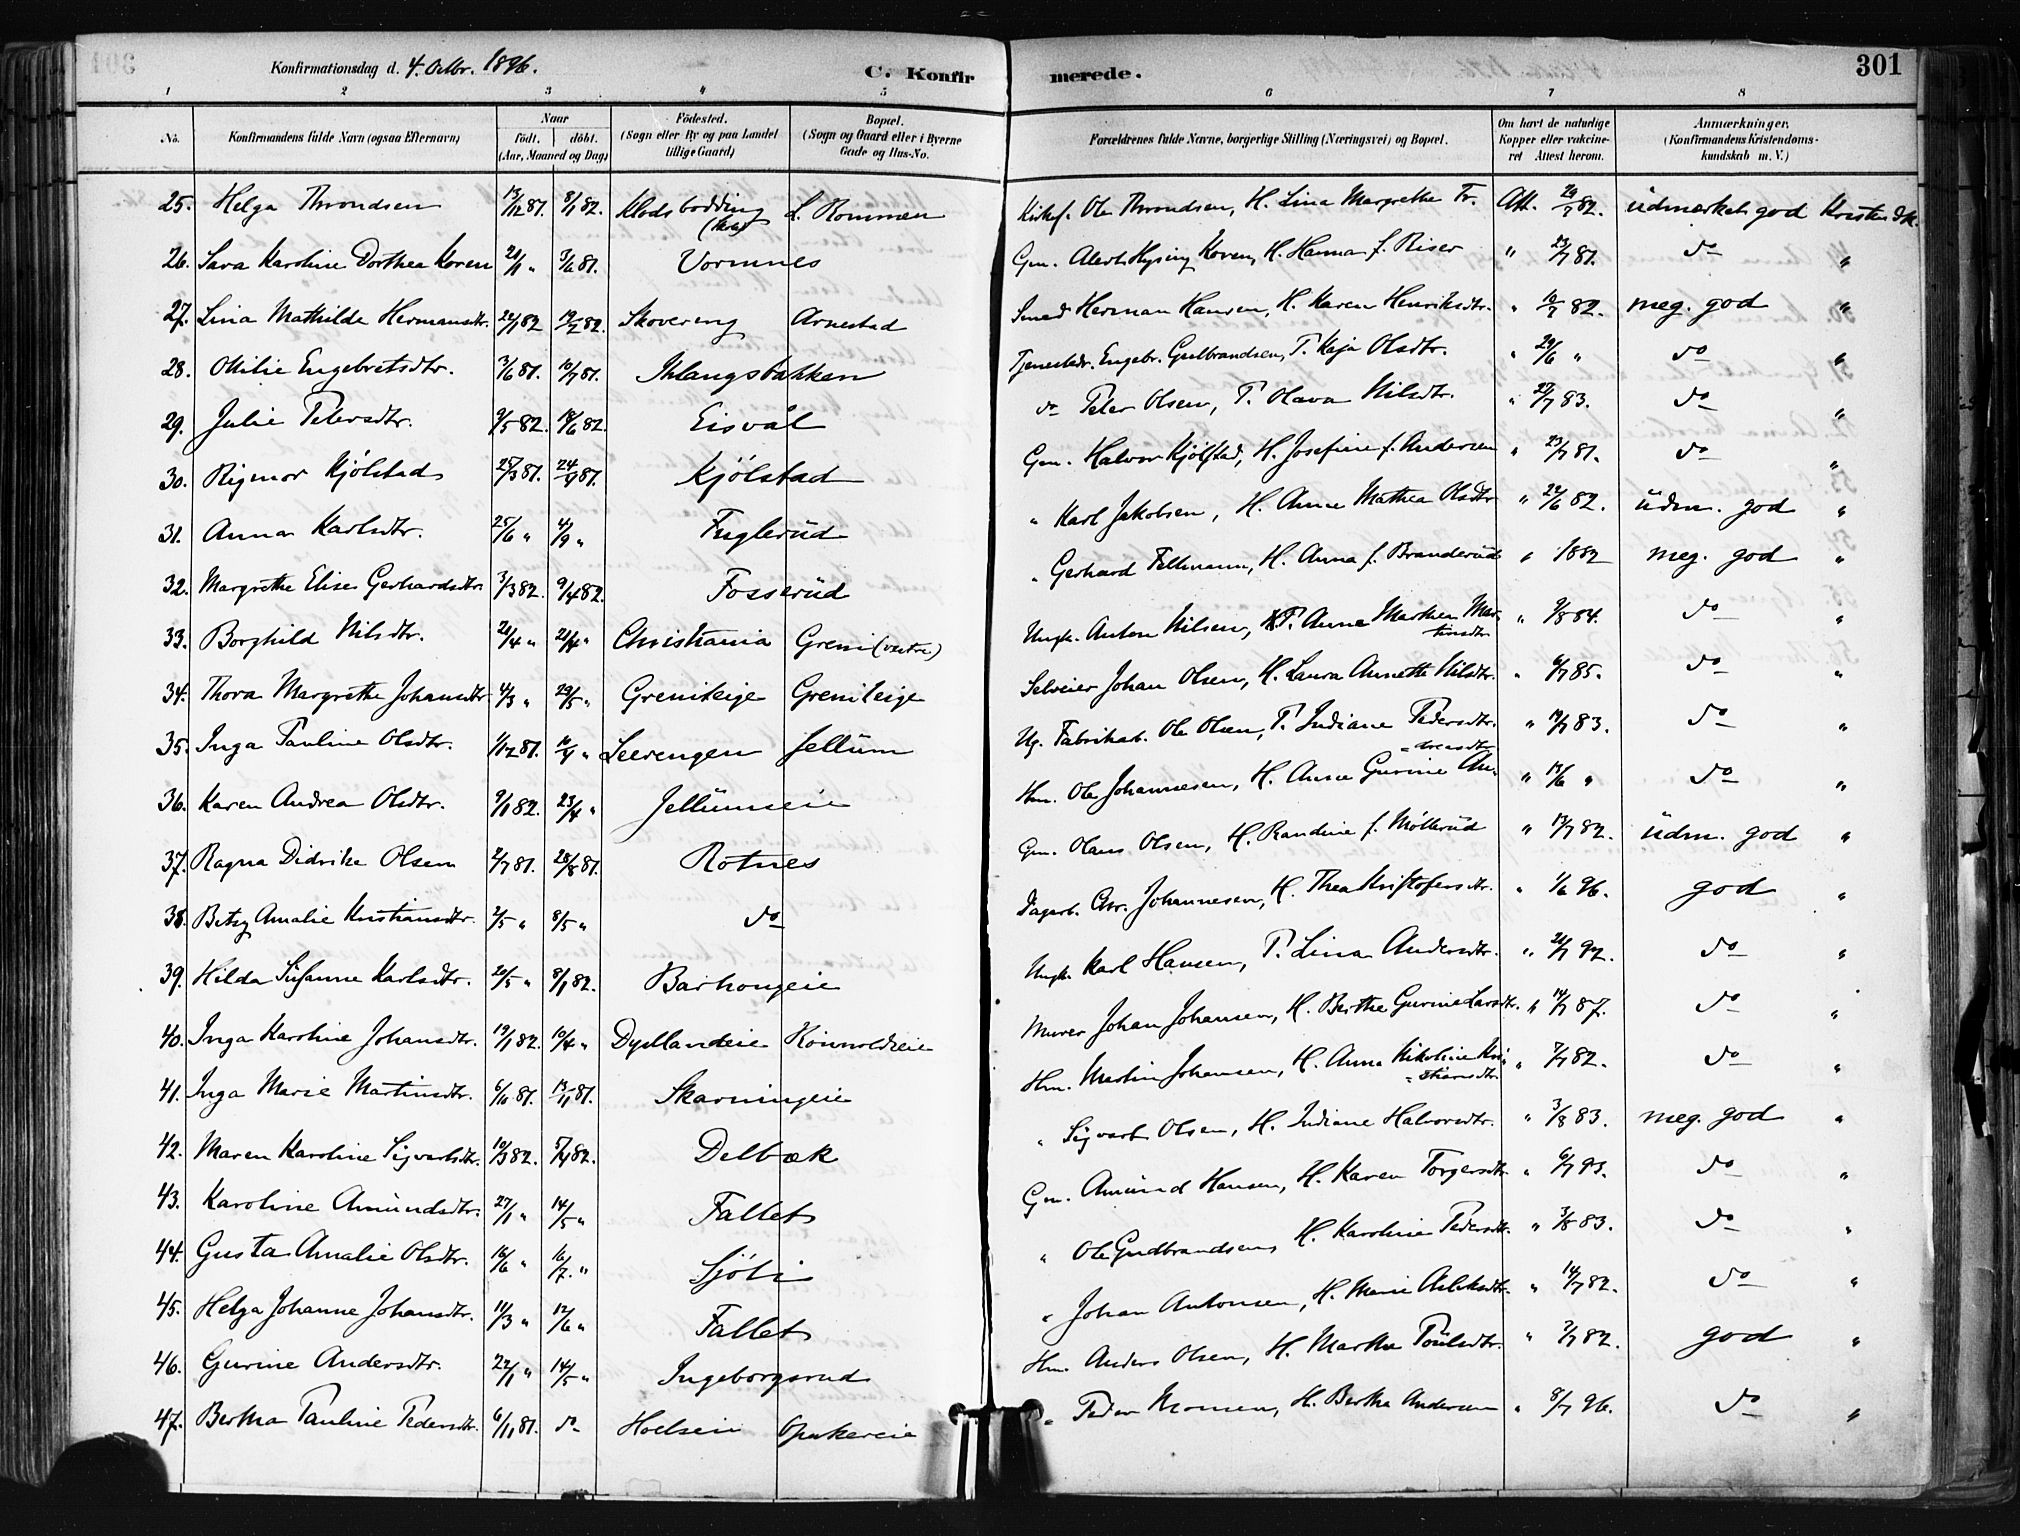 Konfirmationsdag d. 4. Octbr. 1896. C. Konfirmerede. 301
1 2 3 4 5 6 7 8
No. Konfirmandens fulde Navn (ogsaa Efternavn) Naar födt. döbt. (Aar, Maaned og Dag) Födested. (Sogn eller By og paa Landet tillige Gaard) Bopæl. (Sogn og Gaard eller i Byerne Gade og Hus-No. Forældrenes fulde Navne, borgerlige Stilling (Næringsvei) og Bopæl. Om havt de naturlige Kopper eller vakcineret Attest herom. Anmærkninger. (Konfirmandens Kristendomskundskab m. V.)
25. Helga Throndsen 13/12 81. 8/1 82. Klodsbødding L. Rommen Kirkes. Ole Throndsen, H. Lina Margrethe Tr. Att. 29/7 82. üdmærket god
26. Sara Karoline Dorthea Koren 3/6 81. Vormnes Gm. Koren, H. Hanna f. Riser " 23/7 81. do "
27. Lina Mathilde Hermansdtr. 24/1 82 19/2 82. Skovereng Arnestad Smed Herman Hansen, H. Karen Henriksdtr. " 10/7 82. meg. god "
28. Otilie Engebretsdtr. 3/6 81. 10/7 81. Ihlangsbakken Tjenestedr. Engebr. Gulbrandsen, T. Kaja Olsdtr. " 29/6 " do "
29. Julie Petersdtr. 9/5 82. 18/6 82. Eisvål do Peter Olsen, T. Olava Nilsdtr. " 27/7 83. do "
30. Rigmor Kjölstad 25/3 81. 24/4 81. Kjölstad Gm. Halvor Kjölstad, H. Josefine f. Andersen " 23/7 81. do "
31. Anna Karlsdtr. 25/6 " 4/9 " Fuglerüd " Karl Jakobsen, H. Anne Mathea Olsdtr " 24/6 82. üdm. god "
32. Margrethe Elise Gerhardsdtr. 3/3 82. 9/4 82. Fosserüd " Gerhard Fellmann, H. Anna f. Branderüd " 1882 meg. god "
33. Borghild Nilsdtr. 21/4 " 21/4 " Christiania Greni (vestre) Ungk. Anton Nilsen, T. Anne Marthea Martinsdtr " 9/8 84. do "
34. Thora Margrethe Johansdtr 4/3 " 29/5 " Grenileige Grenileige Selveier Johan Olsen, H. Laura Annette Nilsdtr. " 6/7 85. do "
35. Inga Pauline Olsdtr. 1/12 81. Leerengen Jellüm Ug. Fabrikarb. Ole Olsen, T. Indiane Pedersdtr. " 19/7 83. do "
36. Karen Andrea Olsdtr. 9/1 82. 23/4 " Jellümseie Hm. Ole Johannesen, H. Anne Gurine Andreasdtr " 13/6 " do "
37. Ragna Didrike Olsen 2/7 81. 28/8 81. Rotnes Gm. Olaus Olsen, H. Randine f. Möllerüd " 13/7 82. üdm. god "
38. Betsy Amalie Kristiansdtr. 2/5 " 8/5 " do Dagarb. Chr. Johannesen, H. Thea Kristofersdtr. " 1/6 96. god "
39. Hilda Susanne Karlsdtr. 20/5 " 8/1 82. Barhongeie Ungk. Karl Hansen, T. Lina Andersdtr. " 21/7 92. do "
40. Inga Karoline Johansdtr. 19/1 82. 10/4 " Dyllandeie Murer Johan Johansen, H. Berthe Gurine Larsdtr. " 14/7 87. do "
41. Inga Marie Martinsdtr. 6/10 81. 13/11 81. Skarningeie Hm. Martin Johansen, H. Anna Nikoline Kristiansdtr. " 7/7 82. do "
42. Maren Karoline Sigvartsdtr. 10/3 82. 5/4 82. Delbæk " Sigvart Olsen, H. Indiane Halvorsdtr. " 3/8 83. meg. god "
43. Karoline Amündsdtr. 27/1 " 14/5 " Fallet Gm. Amünd Hansen, H. Karen Torgersdtr. " 6/7 93. do "
44. Gusta Amalie Olsdtr. 16/6 " 16/7 " Sjöli " Ole Gudbrandsen, H. Karoline Pedersdtr. " 3/8 83. do "
45. Helga Johanne Johansdtr. 11/3 " 12/6 " Fallet " Johan Antonsen, H. Marie Aslaksdtr. " 14/7 82. do "
46. Gurine Andersdtr. 22/1 " 14/5 " Ingeborgsrud Hm. Anders Olsen, H. Marthe Poulsdtr. " 7/7 82. god "
47. Bertha Pauline Pedersdtr. 6/11 81. do Holseie Opakereie " Peder Monsen, H. Berthe Andersen " 8/7 96. do "